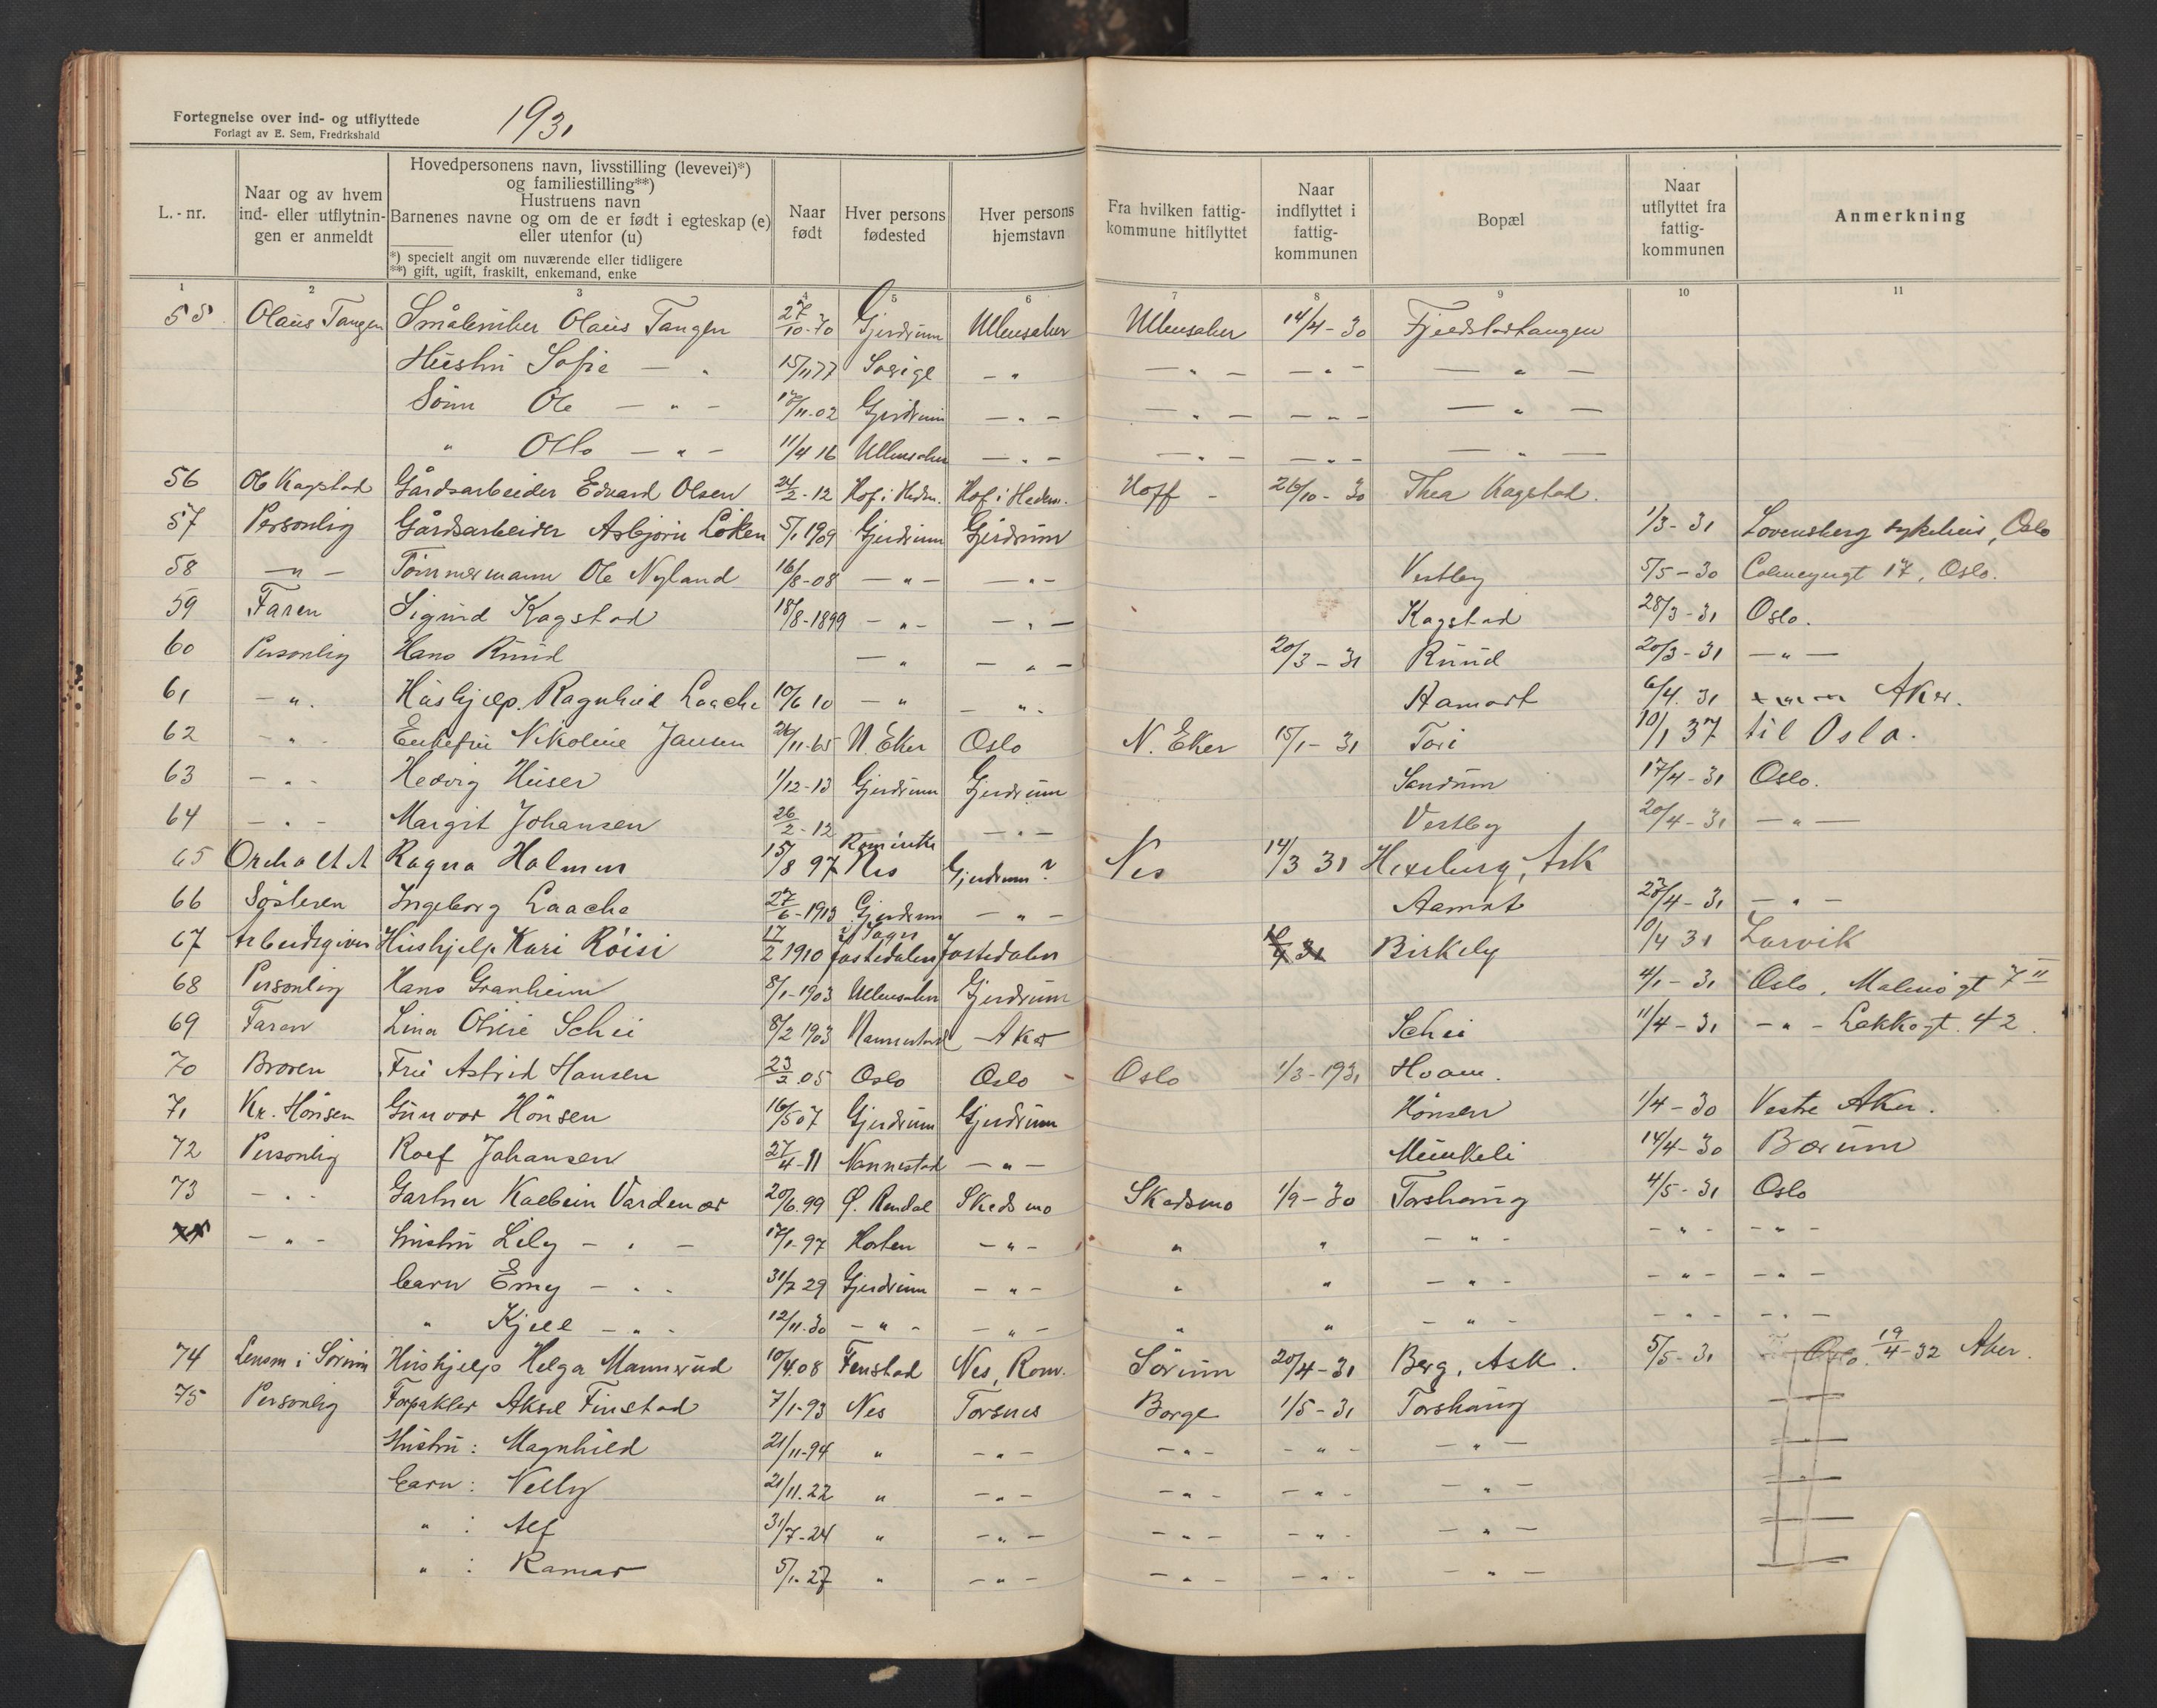 Fortegnelse over ind- og utflyttede
Forlagt av E. Sem, Fredrkshald
1931
L.-nr.
Naar og av hvem ind- eller utflytnin-gen er anmeldt
Hovedpersonens navn, livsstilling (levevei)*) og familiestilling**) Hustruens navn Barnenes navne og om de er født i egteskap (e) eller utenfor (u)
*) specielt angit om nuværende eller tidligere
**) gift, ugift, fraskilt, enkemand, enke
Naar født
Hver persons fødested
Hver persons hjemstavn
Fra hvilken fattig-kommune hitflyttet
Naar indflyttet i fattig-kommunen
Bopæl
Naar utflyttet fra fattig-kommunen
Anmerkning
1 2 3 4 5 6 7 8 9 10 11
55 Olaus Tangen Småbruker Olaus Tangen 27/10-70 Gjerdrum Ullensaker Ullensaker 14/4-30 Fjeldstadtangen
Hustru Sofie — " 15/11 77 Sverige — " — " — — " — — " —
Sønn Ole — " — 17/11-02 Gjerdrum — " — — " — — " — — " —
" Otto — " — 11/4 16 Ullensaker — " — — " — — " — — " —
56 Ole Kagstad Gårdsarbeider Edvard Olsen 24/2-12 Hof i Hedm. Hof i Hedm. Hoff 26/10-30 Thea Kagstad.
57 Personlig Gårdsarbeider Asbjørn Løken 5/1 1909 Gjerdrum Gjerdrum 1/3-31 Lovensberg sykehus, Oslo
58 — " — Tømmermann Ole Nyland 16/8-08 — " — — " — Vestby 5/5-30 Calmeyergt 17, Oslo.
59 Faren Sigurd Kagstad 18/8-1899 — " — — " — Kagstad 28/3-31 Oslo.
60 Personlig Hans Ruud — " — " — 20/3-31 Ruud 20/3-31 — " —
61 — " . Hushjelp. Ragnhild Laache 10/6 10 — " — " . Aamodt 6/4. 31 Aker.
62 — " - Enkefru Nikoline Jansen 26/11-65 N. Eker Oslo N. Eker 15/1-31 Tori 10/1 37 til Oslo.
63 — " - Hedvig Huser 1/12-13 Gjerdrum Gjerdrum Sandum 17/4-31 Oslo.
64 — " - Margit Johansen 26/2-12 — " — Vestby 20/4-31 — " —
65 Ragna Holmen 15/8 97 Romerike Nes Gjerdrum? Nes 14/3 31 Hexeberg, Ask
66 Søsteren Ingeborg Laache 27/6-1913 Gjerdrum — " — Aamodt 28/4-31 — " —
67 Arbeidsgiver Hushjelp Kari Røisi 17/2 1910 i Sogn Jostedalen Jostedalen Birkely 10/4 31 Larvik
68 Personlig Hans Granheim 8/1-1903 Ullensaker Gjerdrum 4/1-31 Oslo, Malmøgt 7 II
69 Faren Lina Olivie Schei 8/2 1903 Nannestad Aker Schei 11/4-31 — " — Lakkegt. 42.
70 Broren Fru Astrid Hansen 23/2 05 Oslo Oslo Oslo 1/3-1931 Hvam.
71 Kr. Hønsen Gunvor Hønsen 16/5 07 Gjerdrum Gjerdrum Hønsen 1/4-30 Vestre Aker.
72 Personlig Rolf Johansen 27/4-11 Nannestad — " — Munkeli 14/4-30 Bærum
73 — " - Gartner Kolbein Vardenær 20/6.99 Ø. Rendal Skedsmo Skedsmo 1/9-30 Torshaug 4/5-31 Oslo
— " - hustru Lily — " — 17/1-97 Horten — " — " " — " — — " — — " —
barn Emy — " - 31/7 29 Gjerdrum — " — " " — " — — " — — " —
" Kjell — " - 12/11.30 — " - — " — " " — " — — " — — " —
74 Lensm i Sørum Hushjelp Helga Mannerud 10/4.08 Fenstad Nes, Rom. Sørum 20/4-31 Berg, Ask. 5/5-31 Oslo. 19/4-32 Aker.
75 Personlig Forpakter Aksel Finstad 7/1-93 Nes Torsnes Borge 1/5-31 Torshaug
Hustru: Magnhild 21/11-94 " — " — — " — — " — — " —
barn: Nelly 21/11.22 " — " — — " — — " — — " —
" : Alf 31/7-24 " — " — — " — — " — — " —
" : Ramar 5/1-27 " — " — — " — — " — — " —